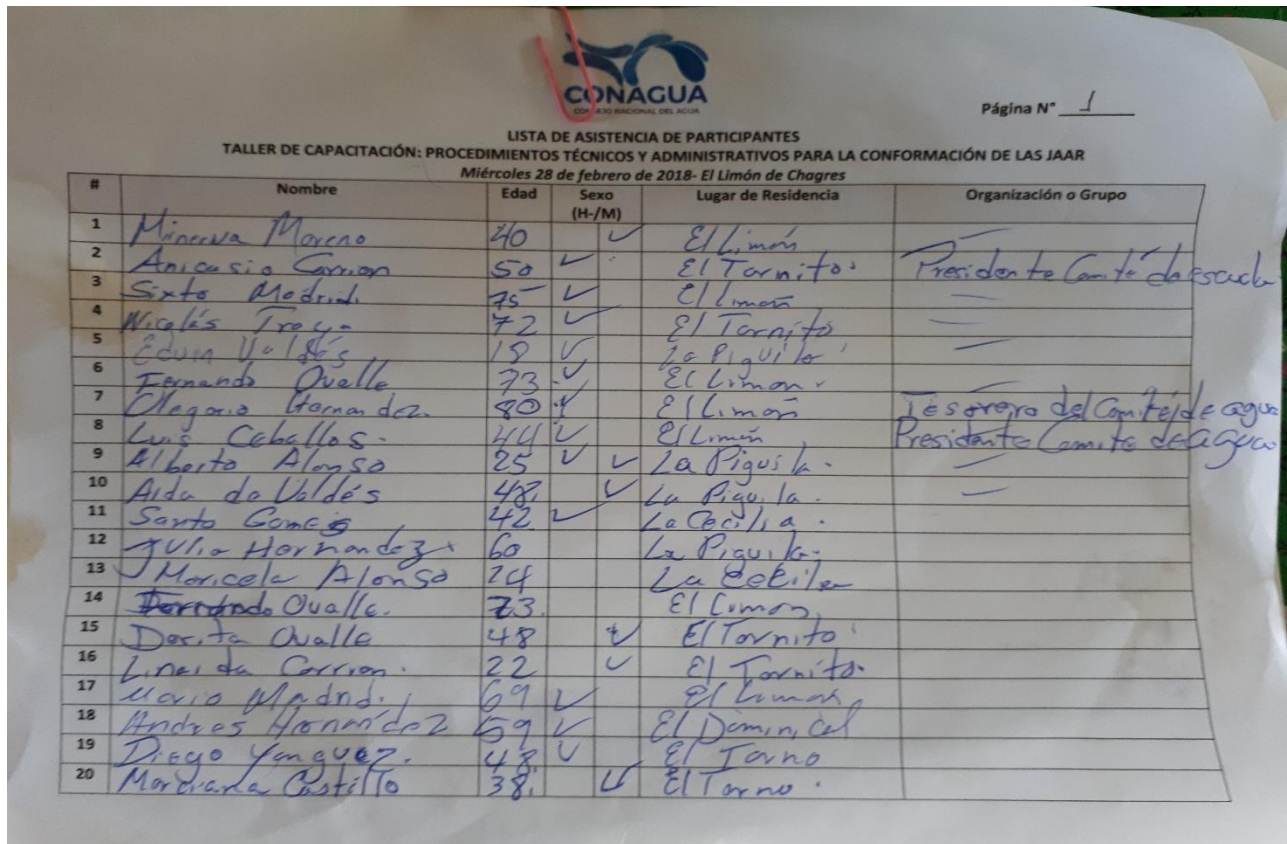 CONAGUA
CONSEJO NACIONAL DEL AGUA
Página N° 1
LISTA DE ASISTENCIA DE PARTICIPANTES
TALLER DE CAPACITACIÓN: PROCEDIMIENTOS TÉCNICOS Y ADMINISTRATIVOS PARA LA CONFORMACIÓN DE LAS JAAR
Miércoles 28 de febrero de 2018- El Limón de Chagres
# Nombre Edad Sexo (H-/M) Lugar de Residencia Organización o Grupo
1 Minerva Moreno 40 ✓ El Limón —
2 Anicasio Carrion 50 ✓ El Tornito. Presidente Comité de escuela
3 Sixto Madrid. 75 ✓ El Limón —
4 Nicolás Troya 72 ✓ El Tornito —
5 Edvin Valdés 18 ✓ La Piguila —
6 Fernando Ovalle 73 ✓ El Limon. —
7 Olegario Hernandez. 80 ✓ El Limón Tesorero del Comité de agua
8 Luis Ceballos. 44 ✓ El Limón Presidente Comite de agua
9 Alberto Alonso 25 ✓ ✓ La Piguila. —
10 Aida de Valdés 48. ✓ La Piguila. —
11 Santo 42 ✓ La Cecilia.
12 Julio Hernandez 60 La Piguila.
13 Maricela Alonso 24 La
14 Fernando Ovalle. 73. El Limon.
15 Dorita Ovalle 48 ✓ El Tornito
16 Lineida Carrion. 22 ✓ El Tornito.
17 Mario Madrid. 69 ✓ El Limon
18 Andres Hernández 59 ✓ El Dominical
19 Diego Yanguez. 48. ✓ El Torno
20 Marciana Castillo 38. ✓ El Torno.